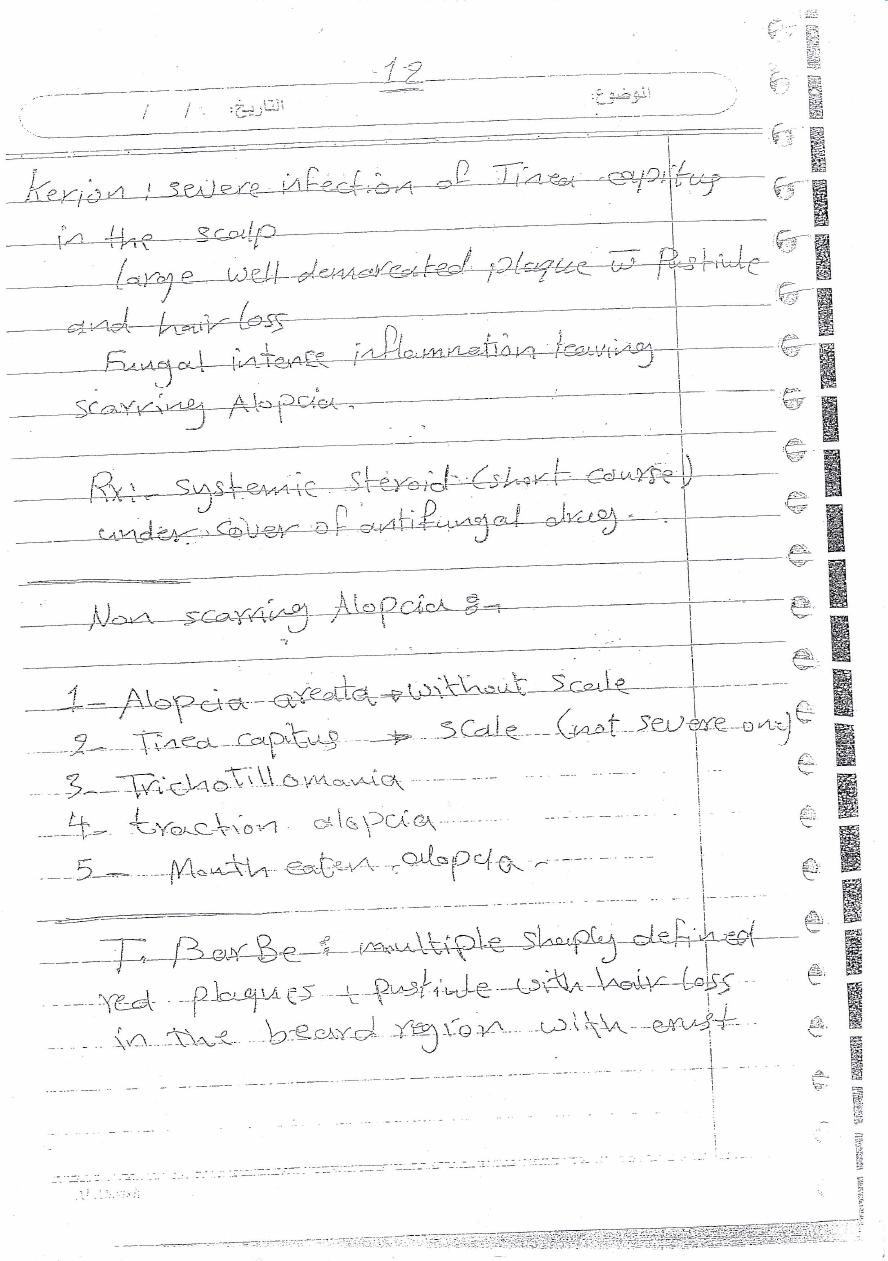 -12
الموضوع: التاريخ: / /
Kerion : severe infection of Tinea capitus
in the scalp
large well demarcated plaque w̅ Pustule
and hair loss
Fungal intense inflamnation leaving
scarring Alopcia.
Rx:. Systemic steroid (short course)
under cover of antifungal drug.
Non scarring Alopcia :-
1- Alopcia areata → without scale
2- Tinea capitus → scale (not severe one)
3- Trichotillomania
4- traction alopcia
5- Mouth eaten alopcia -
T. BarBe : multiple sharply defined
red plaques + Pustule with hair loss
in the beard region with crust